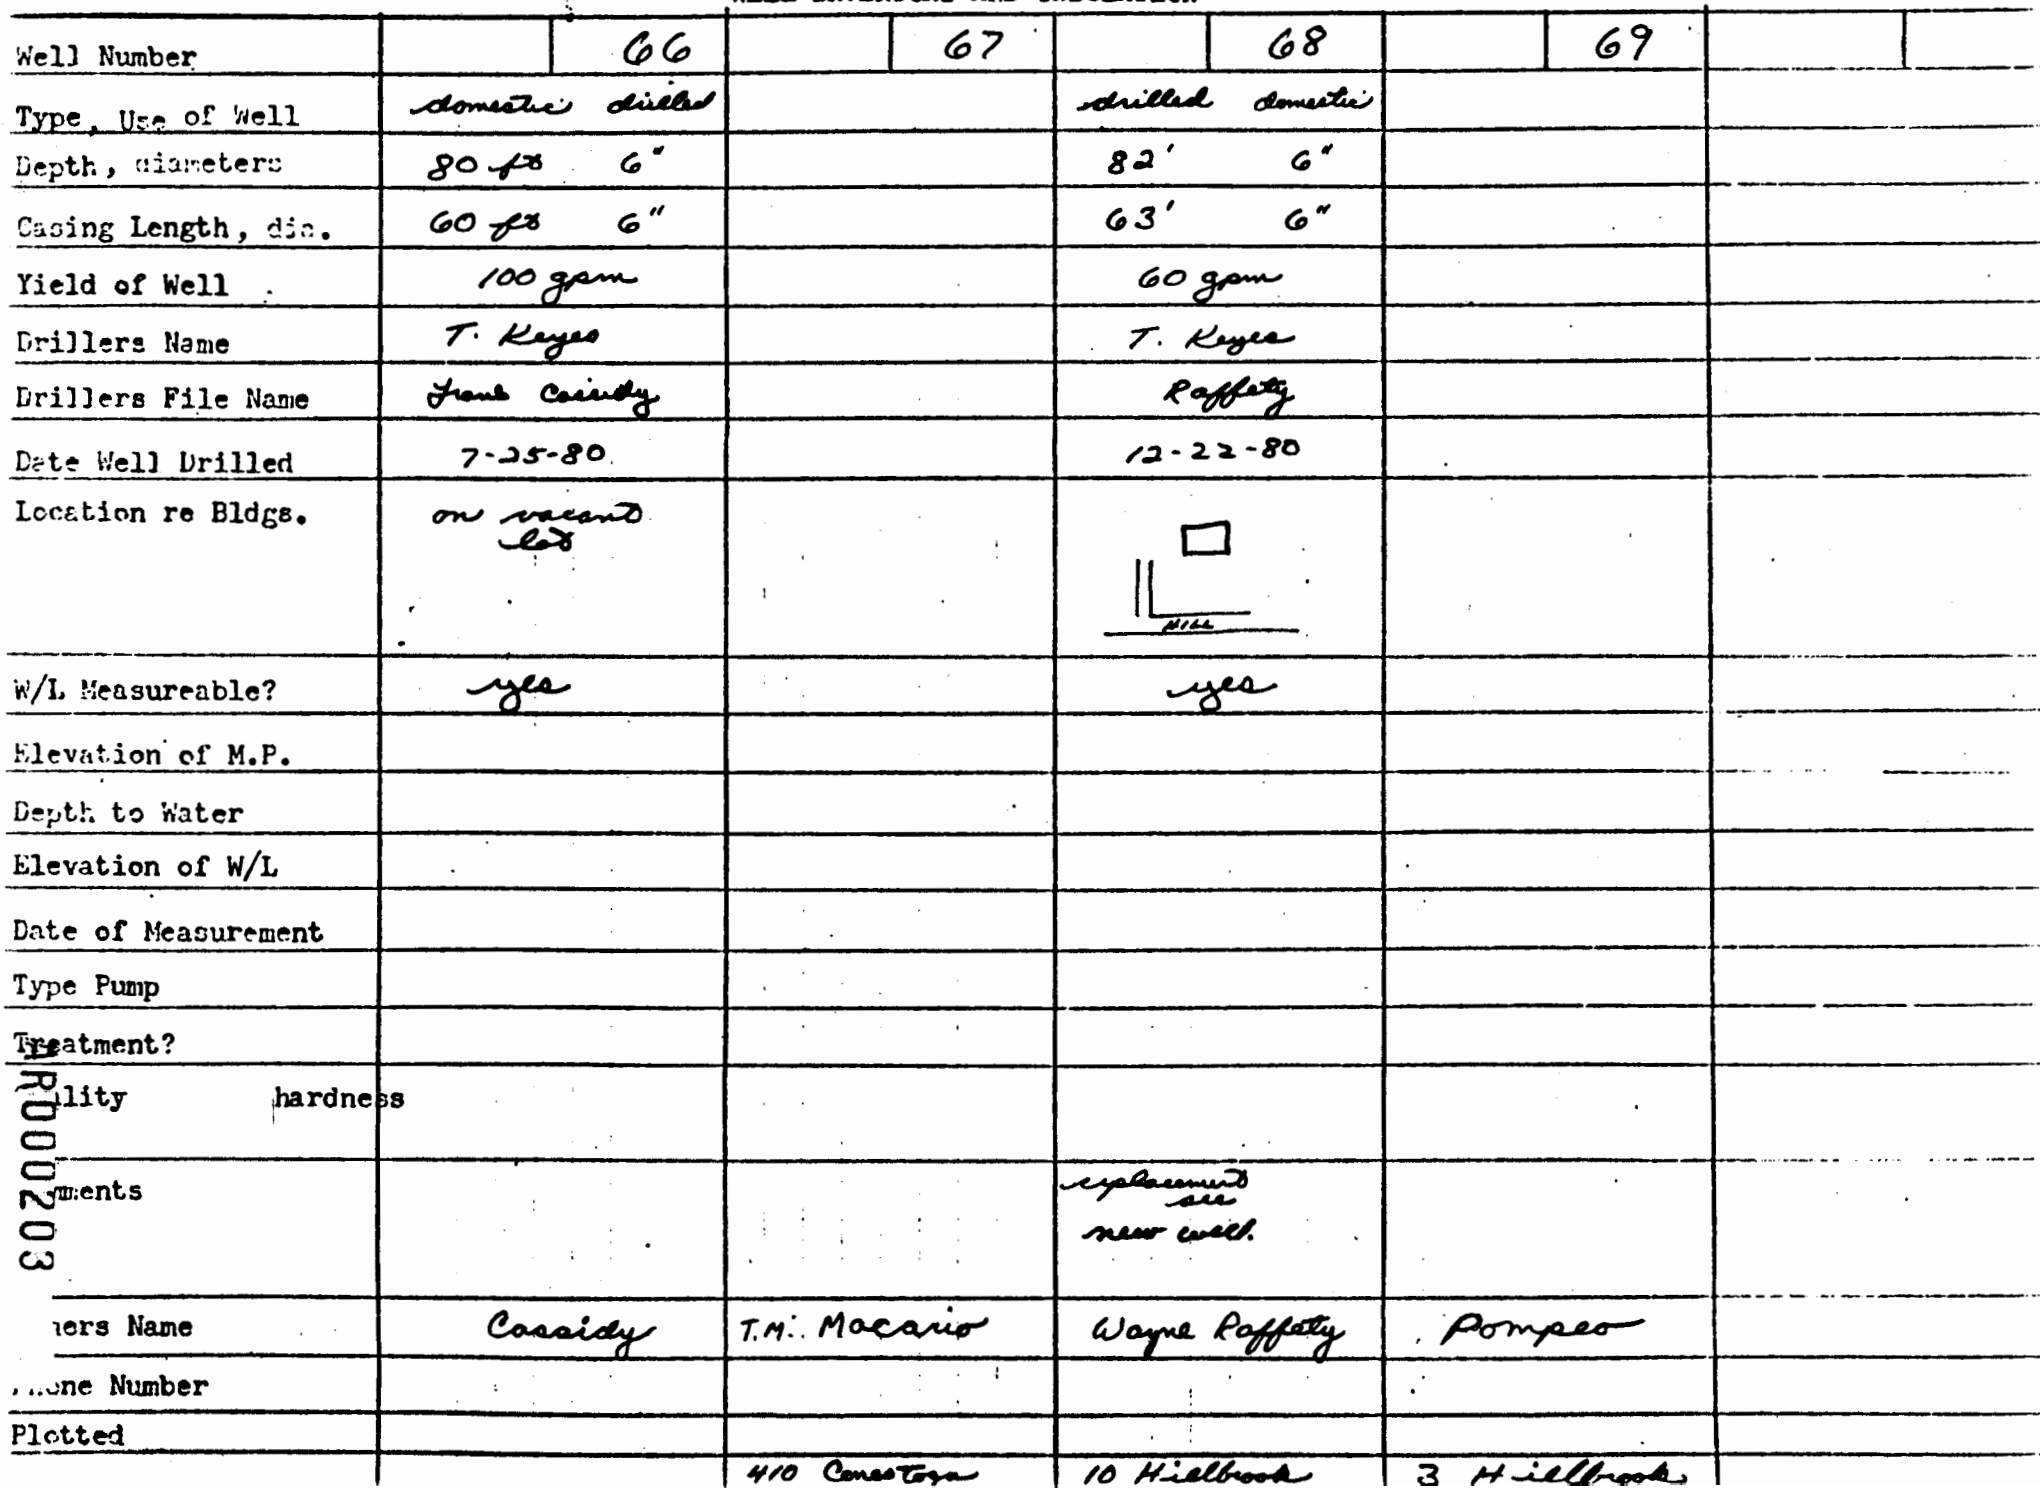 Well Number 66 67 68 69
Type, Use of Well domestic drilled drilled domestic
Depth, diameters 80 ft 6" 82' 6"
Casing Length, dia. 60 ft 6" 63' 6"
Yield of Well 100 gpm 60 gpm
Drillers Name T. Keyes T. Keyes
Drillers File Name Frank Cassidy Raffety
Date Well Drilled 7-25-80 12-22-80
Location re Bldgs. on vacant
lot
HILL
W/L Measureable? yes yes
Elevation of M.P.
Depth to Water
Elevation of W/L
Date of Measurement
Type Pump
Treatment?
ality hardness
mments replacement
see
new well.
ners Name Cassidy T.M. Macario Wayne Raffety Pompeo
hone Number
Plotted
410 Conestoga 10 Hillbrook 3 Hillbrook
R000203